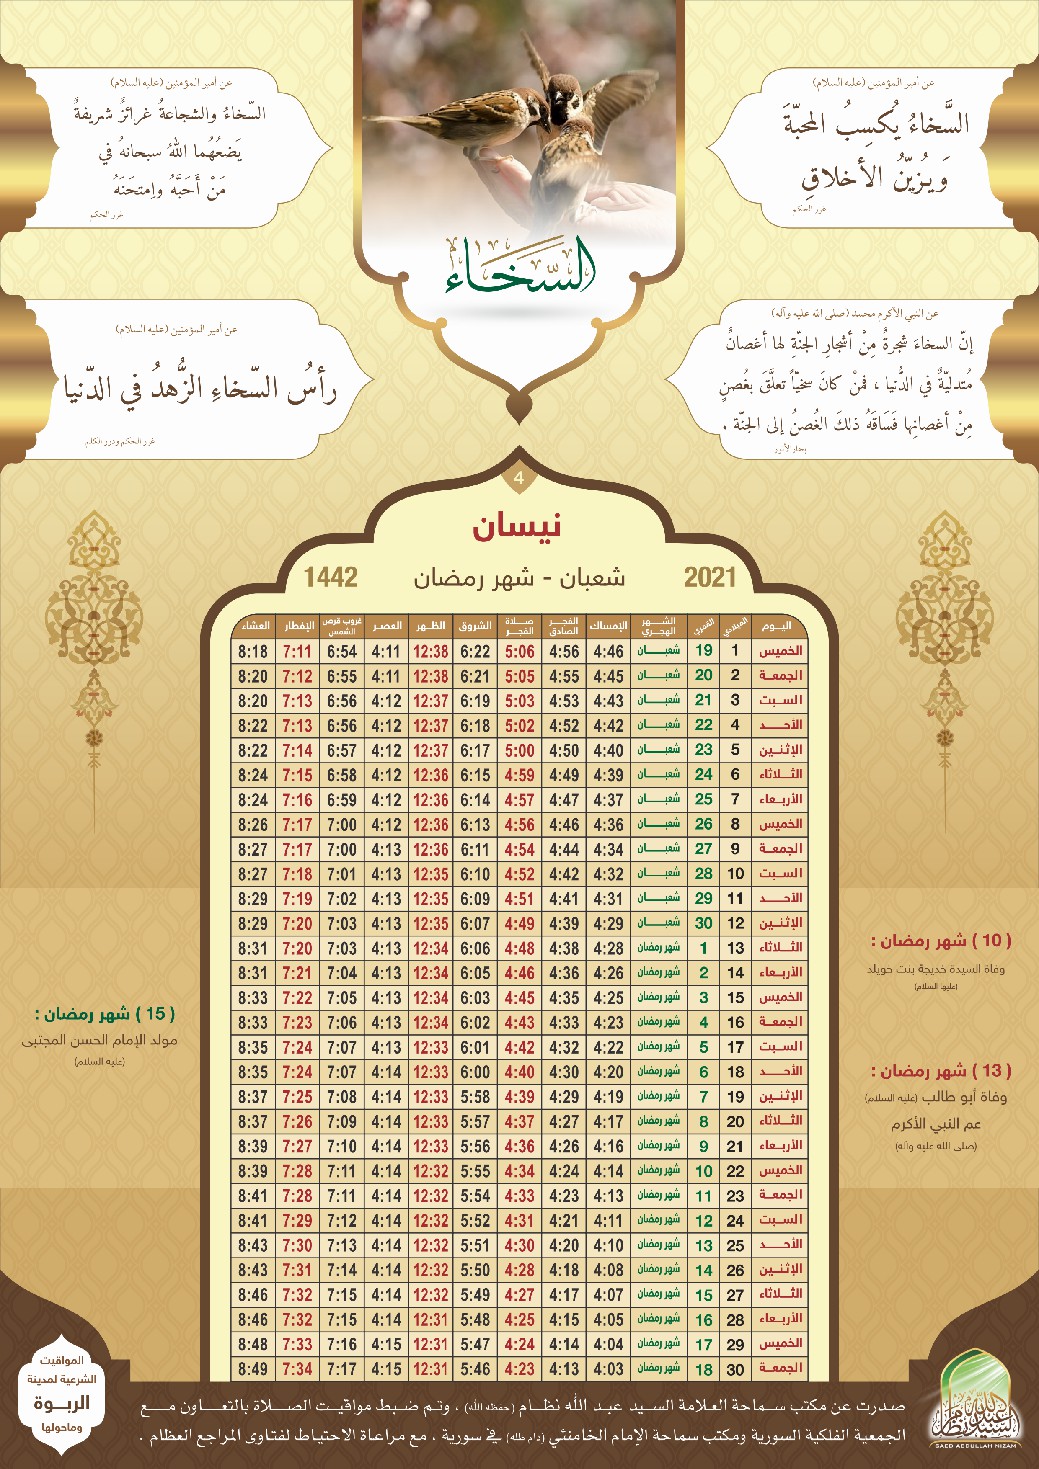 عن أمير المؤمنين (عليه السلام)
السَّخاءُ يُكسِبُ المحبّةَ
وَيُزيّنُ الأخلاقِ
غرر الحكم
عن أمير المؤمنين (عليه السلام)
السّخاءُ والشجاعةُ غرائزٌ شريفةٌ
يَضعُهُما اللهُ سبحانهُ في
مَنْ أَحَبَّهُ وامتحَنَهُ
غرر الحكم
السّخاء
عن النبي الأكرم محمد (صلى الله عليه وآله)
إنّ السخاءَ شجرةٌ مِنْ أشجارِ الجنّةِ لها أغصانٌ
مُتدليّةٌ في الدُّنيا ، فمَنْ كانَ سخيّاً تعلّقَ بغُصنٍ
مِنْ أغصانِها فَسَاقَهُ ذلكَ الغُصنُ إلى الجنّة .
بحار الأنوار
عن أمير المؤمنين (عليه السلام)
رأسُ السّخاءِ الزُّهدُ في الدّنيا
غرر الحكم ودرر الكلم
4
نيسان
2021 شعبان - شهر رمضان 1442
اليوم الميلادي القمري الشهر الهجري الإمساك الفجر الصادق صلاة الفجر الشروق الظهر العصر غروب قرص الشمس الإفطار العشاء
الخميس 1 19 شعبان 4:46 4:56 5:06 6:22 12:38 4:11 6:54 7:11 8:18
الجمعة 2 20 شعبان 4:45 4:55 5:05 6:21 12:38 4:11 6:55 7:12 8:20
السبت 3 21 شعبان 4:43 4:53 5:03 6:19 12:37 4:12 6:56 7:13 8:20
الأحد 4 22 شعبان 4:42 4:52 5:02 6:18 12:37 4:12 6:56 7:13 8:22
الإثنين 5 23 شعبان 4:40 4:50 5:00 6:17 12:37 4:12 6:57 7:14 8:22
الثلاثاء 6 24 شعبان 4:39 4:49 4:59 6:15 12:36 4:12 6:58 7:15 8:24
الأربعاء 7 25 شعبان 4:37 4:47 4:57 6:14 12:36 4:12 6:59 7:16 8:24
الخميس 8 26 شعبان 4:36 4:46 4:56 6:13 12:36 4:12 7:00 7:17 8:26
الجمعة 9 27 شعبان 4:34 4:44 4:54 6:11 12:36 4:13 7:00 7:17 8:27
السبت 10 28 شعبان 4:32 4:42 4:52 6:10 12:35 4:13 7:01 7:18 8:27
الأحد 11 29 شعبان 4:31 4:41 4:51 6:09 12:35 4:13 7:02 7:19 8:29
الإثنين 12 30 شعبان 4:29 4:39 4:49 6:07 12:35 4:13 7:03 7:20 8:29
الثلاثاء 13 1 شهر رمضان 4:28 4:38 4:48 6:06 12:34 4:13 7:03 7:20 8:31
الأربعاء 14 2 شهر رمضان 4:26 4:36 4:46 6:05 12:34 4:13 7:04 7:21 8:31
الخميس 15 3 شهر رمضان 4:25 4:35 4:45 6:03 12:34 4:13 7:05 7:22 8:33
الجمعة 16 4 شهر رمضان 4:23 4:33 4:43 6:02 12:34 4:13 7:06 7:23 8:33
السبت 17 5 شهر رمضان 4:22 4:32 4:42 6:01 12:33 4:13 7:07 7:24 8:35
الأحد 18 6 شهر رمضان 4:20 4:30 4:40 6:00 12:33 4:14 7:07 7:24 8:35
الإثنين 19 7 شهر رمضان 4:19 4:29 4:39 5:58 12:33 4:14 7:08 7:25 8:37
الثلاثاء 20 8 شهر رمضان 4:17 4:27 4:37 5:57 12:33 4:14 7:09 7:26 8:37
الأربعاء 21 9 شهر رمضان 4:16 4:26 4:36 5:56 12:33 4:14 7:10 7:27 8:39
الخميس 22 10 شهر رمضان 4:14 4:24 4:34 5:55 12:32 4:14 7:11 7:28 8:39
الجمعة 23 11 شهر رمضان 4:13 4:23 4:33 5:54 12:32 4:14 7:11 7:28 8:41
السبت 24 12 شهر رمضان 4:11 4:21 4:31 5:52 12:32 4:14 7:12 7:29 8:41
الأحد 25 13 شهر رمضان 4:10 4:20 4:30 5:51 12:32 4:14 7:13 7:30 8:43
الإثنين 26 14 شهر رمضان 4:08 4:18 4:28 5:50 12:32 4:14 7:14 7:31 8:43
الثلاثاء 27 15 شهر رمضان 4:07 4:17 4:27 5:49 12:32 4:14 7:15 7:32 8:46
الأربعاء 28 16 شهر رمضان 4:05 4:15 4:25 5:48 12:31 4:14 7:15 7:32 8:46
الخميس 29 17 شهر رمضان 4:04 4:14 4:24 5:47 12:31 4:15 7:16 7:33 8:48
الجمعة 30 18 شهر رمضان 4:03 4:13 4:23 5:46 12:31 4:15 7:17 7:34 8:49
( 10 ) شهر رمضان :
وفاة السيدة خديجة بنت خويلد
(عليها السلام)
( 13 ) شهر رمضان :
وفاة أبو طالب (عليه السلام)
عم النبي الأكرم
(صلى الله عليه وآله)
( 15 ) شهر رمضان :
مولد الإمام الحسن المجتبى
(عليه السلام)
المواقيت
الشرعية لمدينة
الربوة
وماحولها
صدرت عن مكتب سماحة العلامة السيد عبد الله نظام (حفظه الله) ، وتم ضبط مواقيت الصلاة بالتعاون مع
الجمعية الفلكية السورية ومكتب سماحة الإمام الخامنئي (دام ظله) في سورية ، مع مراعاة الاحتياط لفتاوى المراجع العظام .
السيد عبد الله نظام
SAED ABDULLAH NIZAM